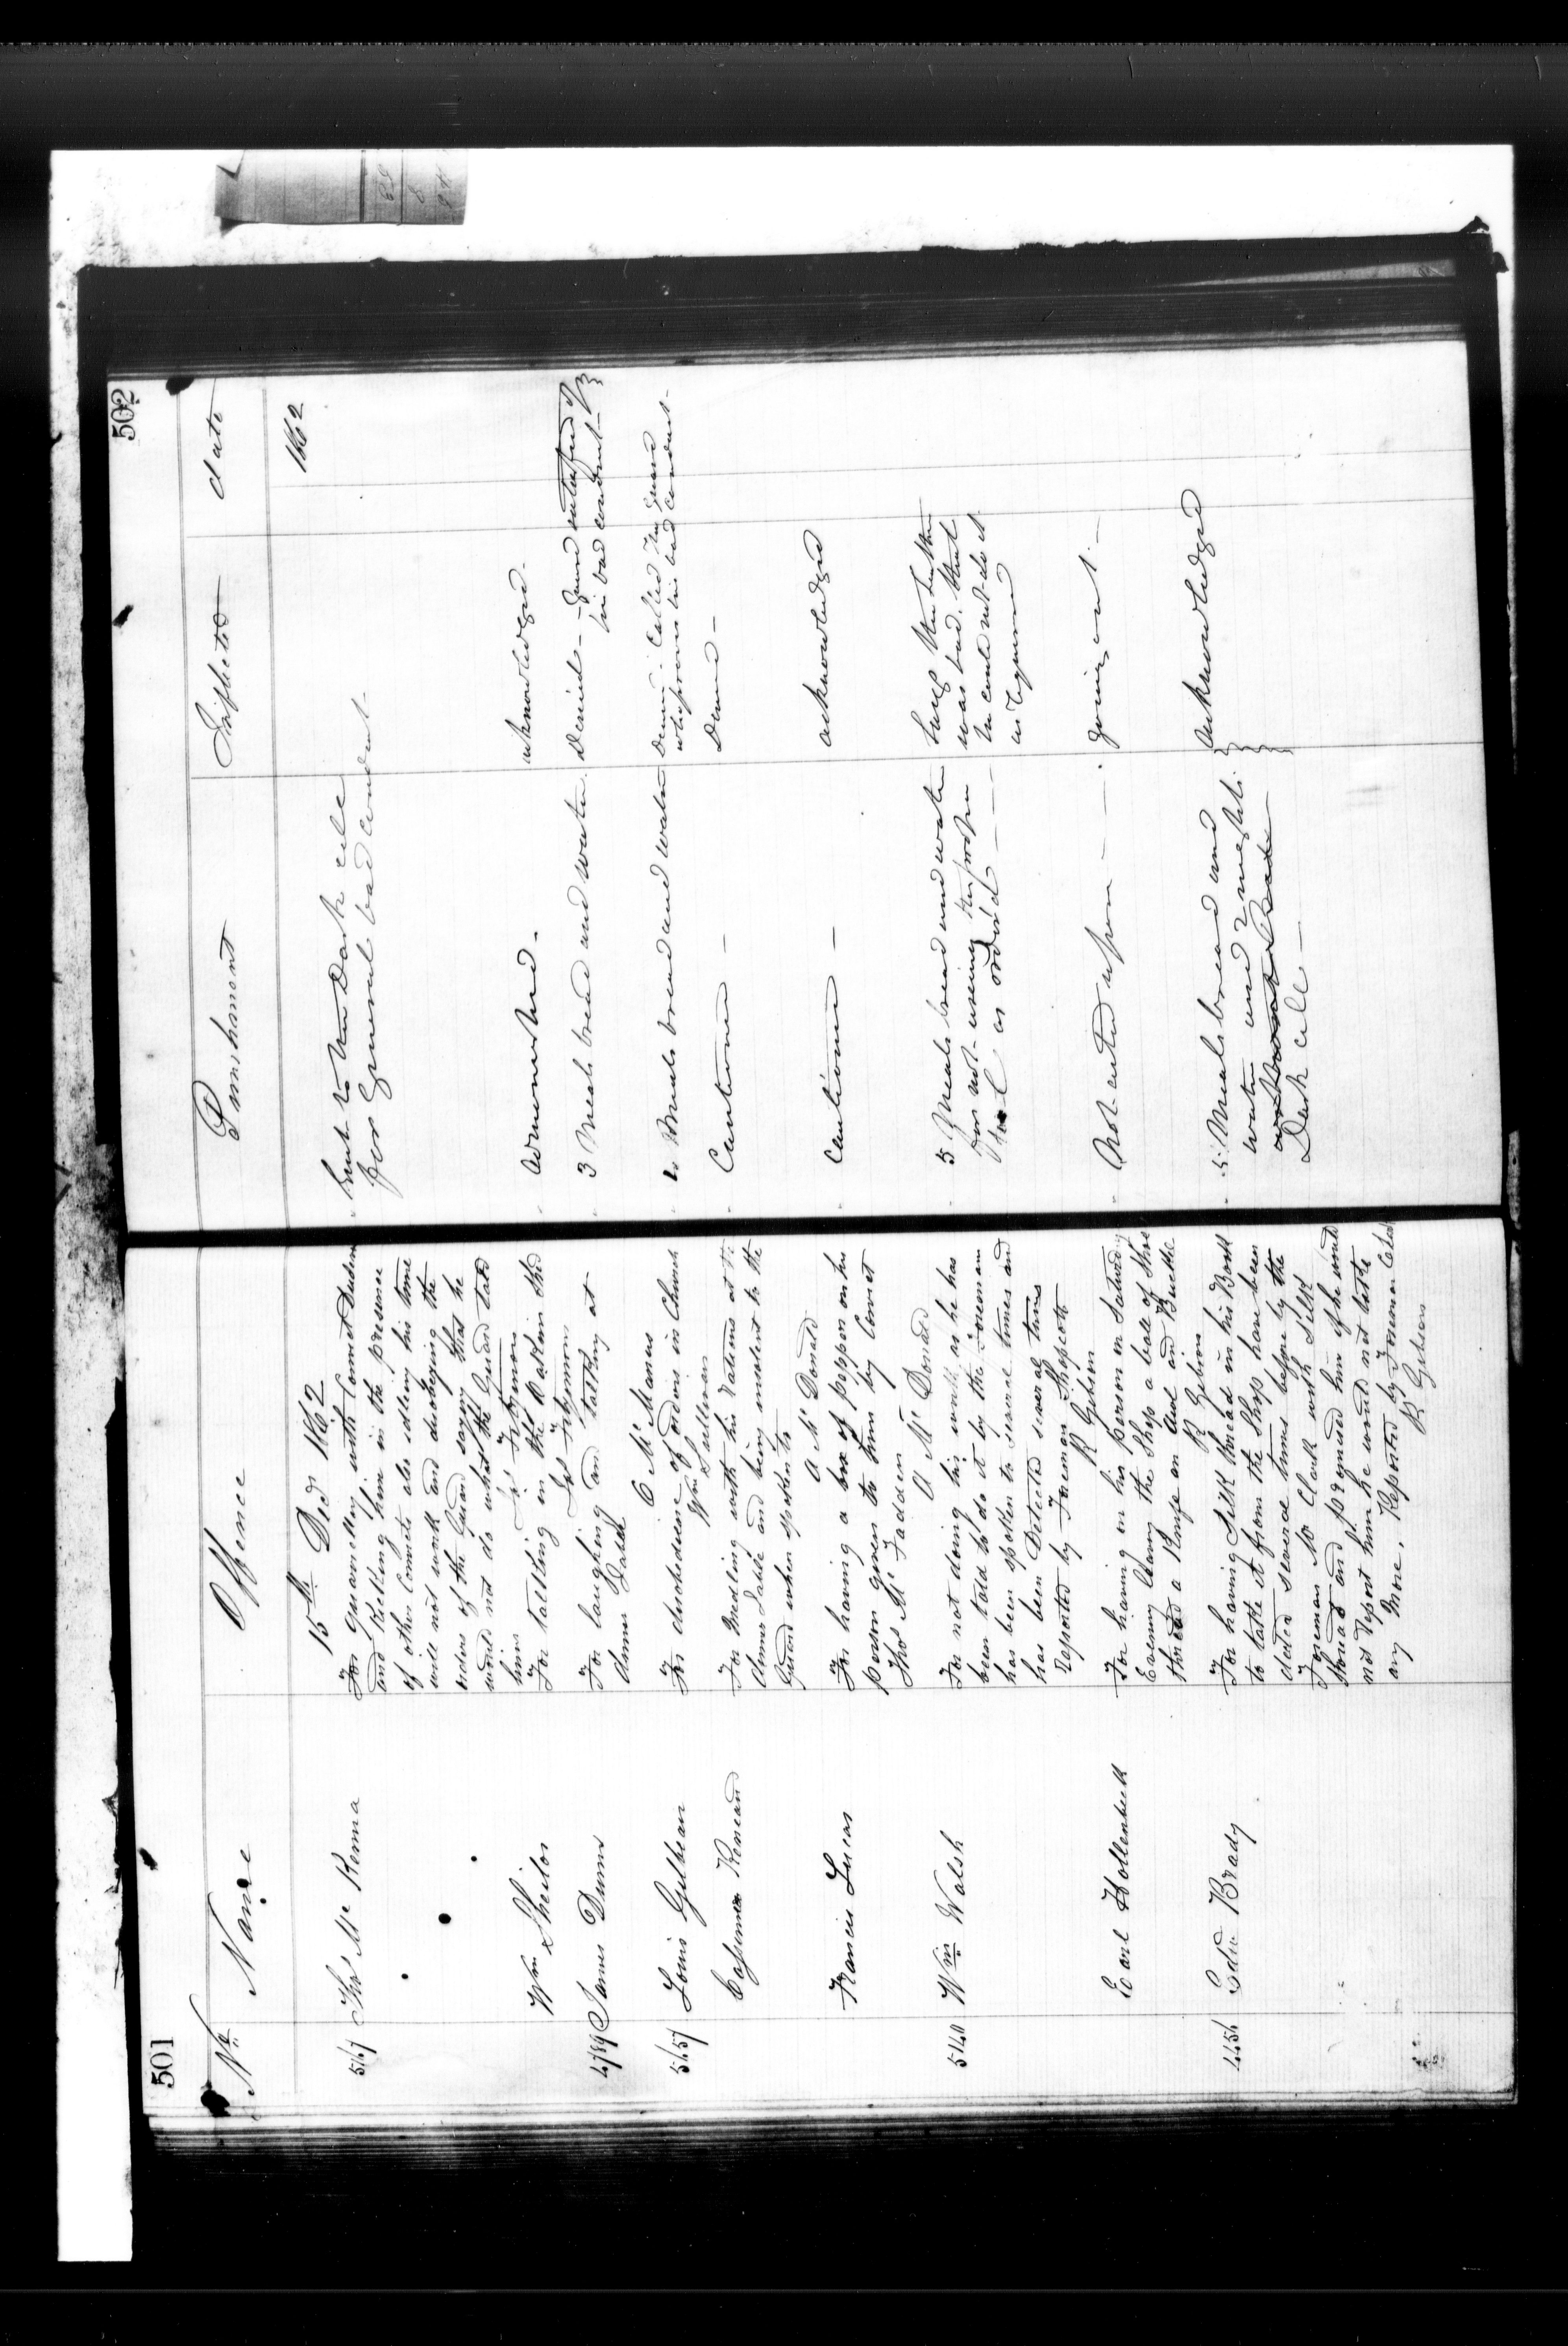 501
No Name Offence
15th Decr 1862
5167 Thos McKenna
For quarrelling with Convict Dudson
and Kicking him in the presence
of other Convicts also idling his time
will not work and disobeying the
orders of the Guard saying that he
would not do what the Guard told
him Jas Fitzgibbon
Wm Sheilds
For talking in the Wash in the
Jas Fitzgibbon
4789 James Dunn
For laughing and talking at
dinner Table
C McManus
5657 Louis Guthean
For disobedience of orders in Church
Wm Sullivan
Casimer Reneaud
For Medling with his rations at the
dinner Table and being insolent to the
Guard when spoken to
A McDonald
Francis Lucas
For having a box of pepper on his
person given to him by Convict
Thos McFadden
A McDonald
5140 Wm Walsh
For not doing his work as he has
been told to do it by the foreman
has been spoken to several times and
has been Detected several times
reported by Foreman Shopcott
R Gibson
Earl Hollenbeck
For having on his person on Saturday
Evening leaving the Shop a ball of Shoe
thread a Knife an Awl and Buckle
R Gibson
4456 Edw Brady
For having Silk thread in his Book
to take it from the Shop have been
Detected several times before by the
Foreman Mr Clark with Silk
thread and promised him if he would
not report him he would not take
any More. Reported by Foreman Clark
R Gibson
502
Punishment Inflicted date
1862
Sent to the Dark cell
for General bad conduct
admonished - acknowledged -
3 Meals bread and water. Denied - Guard satisfied of
his bad conduct -
2 Meals bread and water Denied. Called the Guard
who proves his bad conduct -
Cautioned - Denied -
Cautioned - acknowledged
5 Meals bread and water
for not using the proper
tool as ordered
Says that the
was bad. that
he could not do it
as required
Not acted upon - going out -
5 Meals bread and
water and 2 nights
Dark cell -
Acknowledged